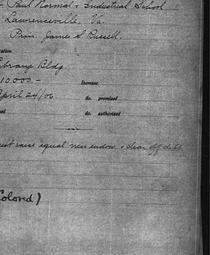 Paul Normal & Industrial School
Lawrenceville, Va.
Prin. James S. Russell.
Library Bldg
10,000.-
Increase
April 24/06
do. promised
do. authorized
must raise equal new endow. & clear off debt
Colored)